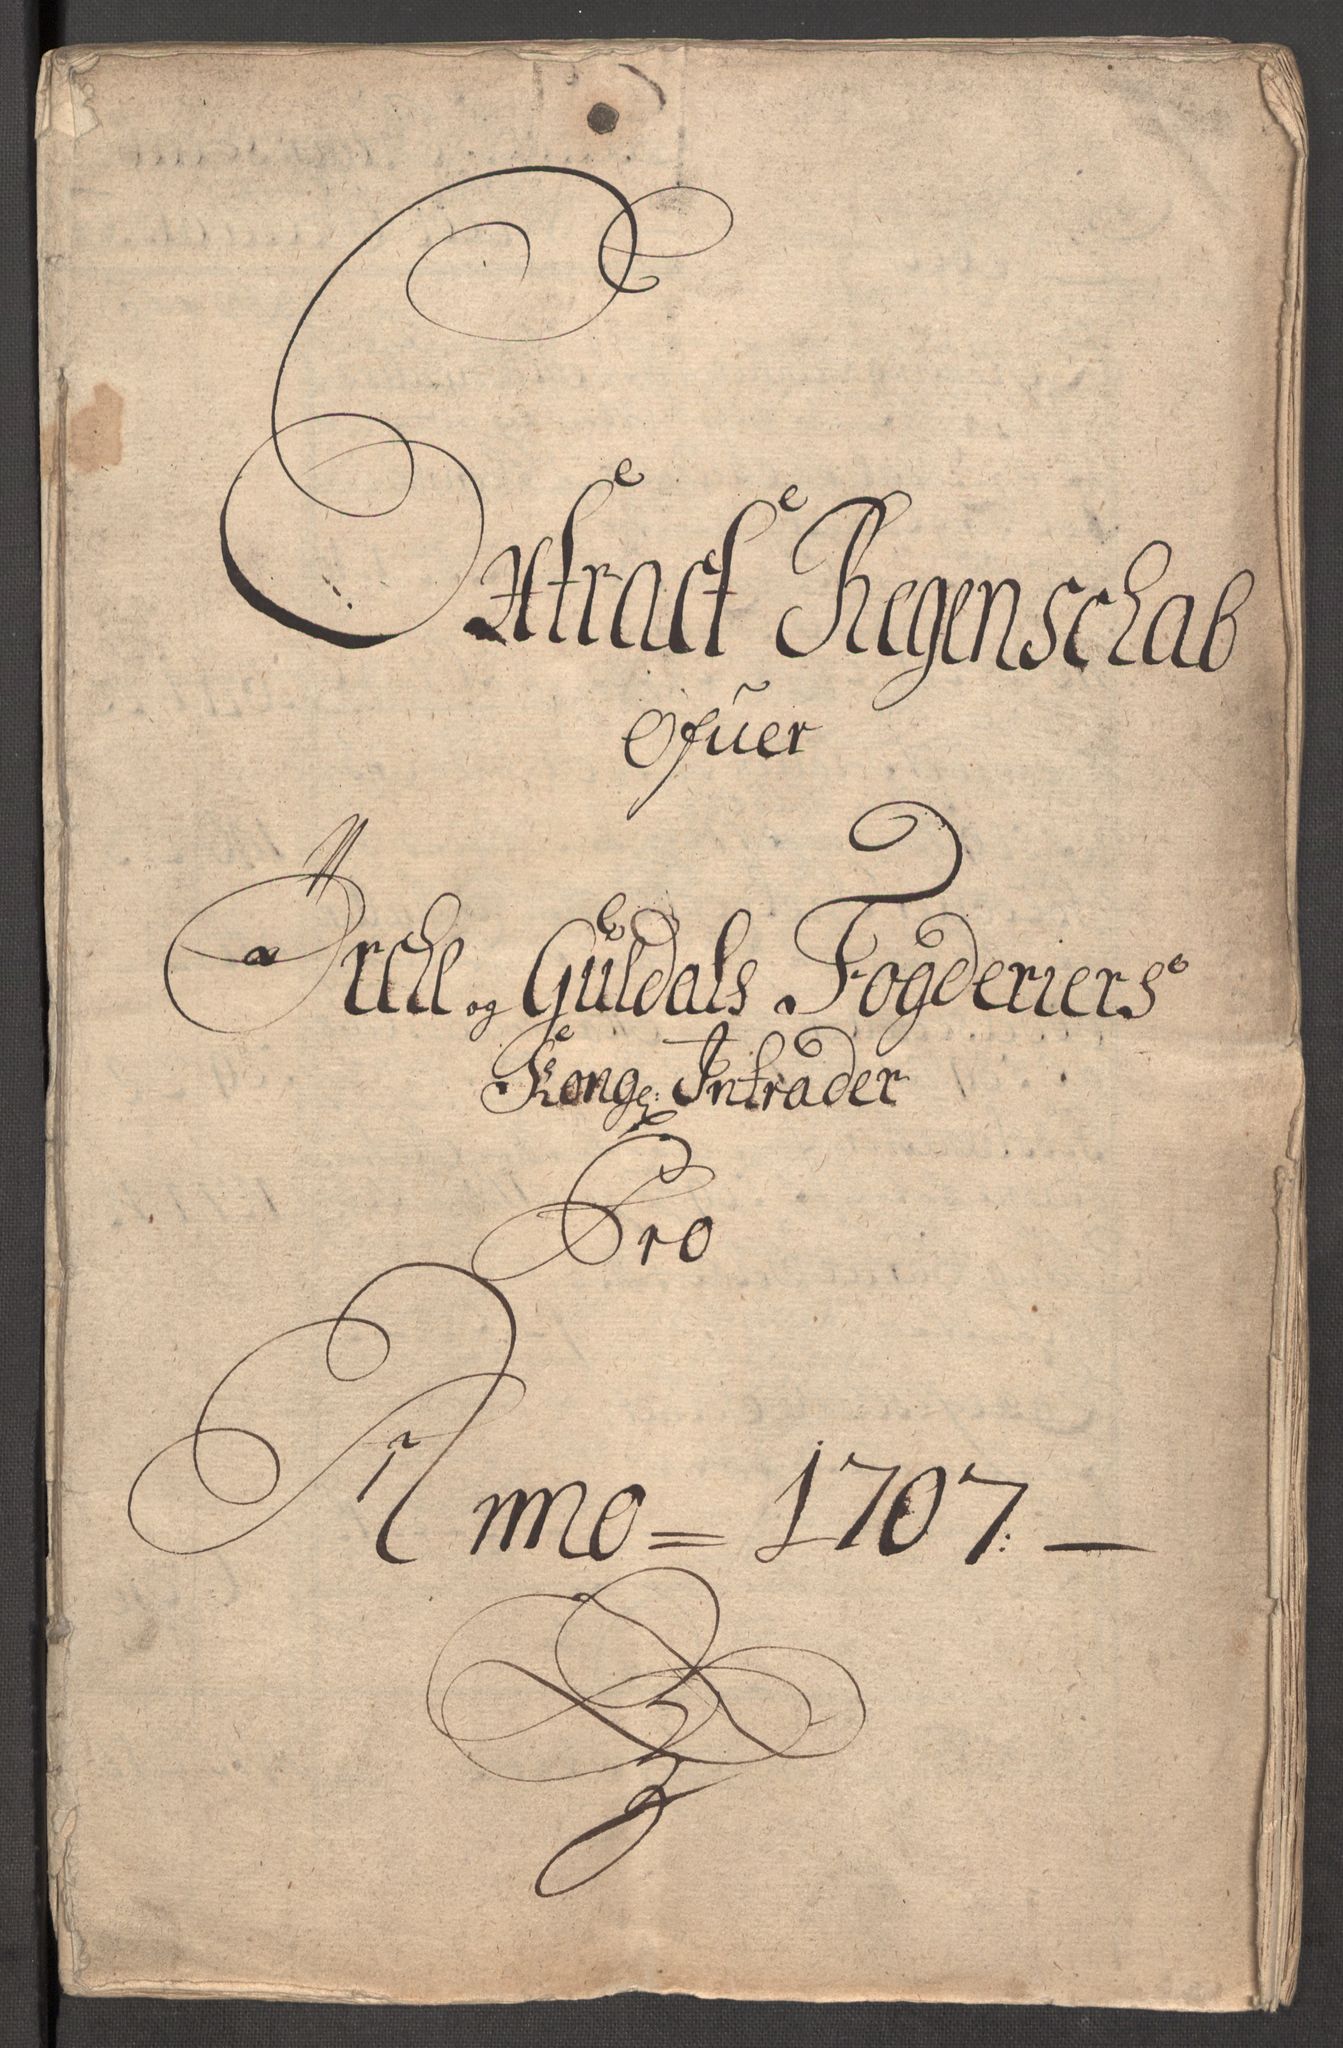 Extract Regenschab
Ofuer
Örchl og Guldals Fogderiers
Kongl: Intrader
Pro
Anno = 1707: —